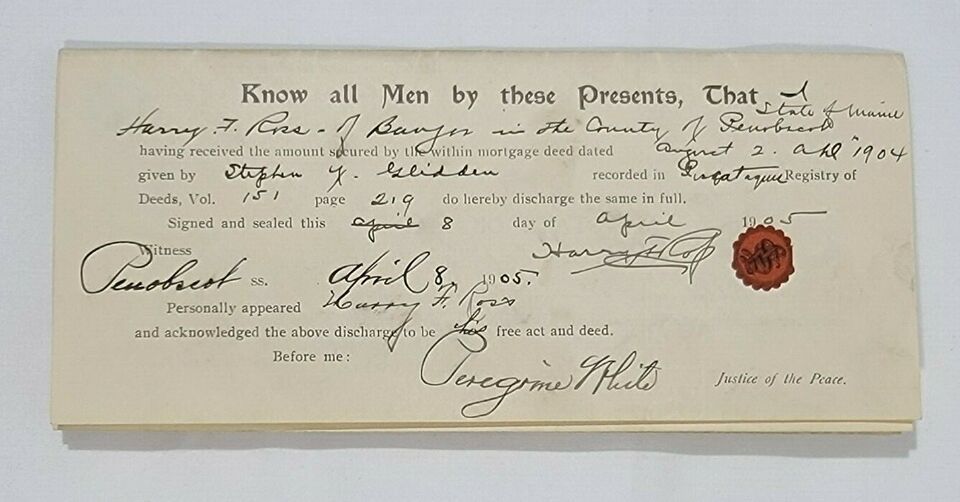 Know all Men by these Presents, That I
Harry F. Ross - of Bangor in the County of Penobscot State of Maine
having received the amount secured by the within mortgage deed dated August 2. A.D. 1904
given by Stephen Glidden recorded in Piscataquis Registry of
Deeds, Vol. 151 page 219 do hereby discharge the same in full.
Signed and sealed this april 8 day of april 1905
Witness Harry F. Ross
Penobscot ss. April 8, 1905.
Personally appeared Harry F. Ross
and acknowledged the above discharge to be his free act and deed.
Before me:
Peregrine White Justice of the Peace.